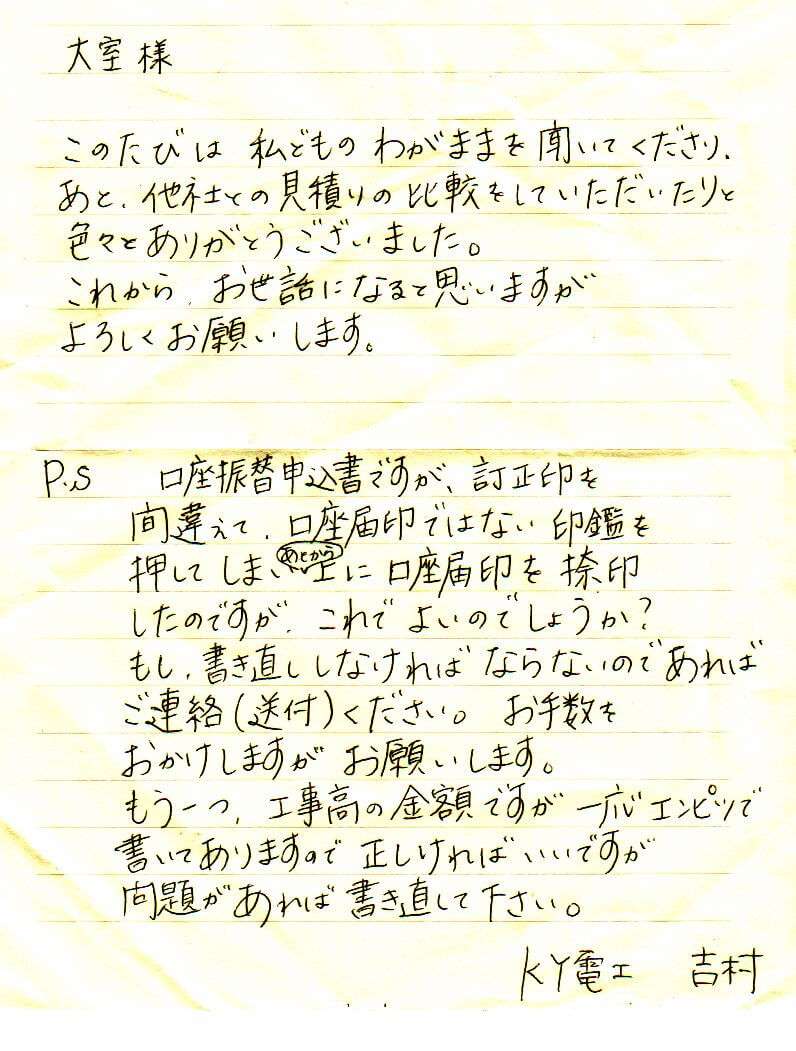 大室様
このたびは 私どもの わがままを 聞いてくださり、
あと、他社との見積りの比較をしていただいたりと
色々とありがとうございました。
これから、お世話になると思いますが
よろしくお願いします。
P.S 口座振替申込書ですが、訂正印を
間違えて、口座届印ではない 印鑑を
あとから
押して しまい 上に 口座届印を 捺印
したのですが、これで よいのでしょうか?
もし、書き直ししなければ ならないのであれば
ご連絡(送付)ください。 お手数を
おかけしますが お願いします。
もう一つ、工事高の金額ですが 一応エンピツで
書いてありますので 正しければいいですが
問題があれば 書き直して下さい。
KY電工 吉村